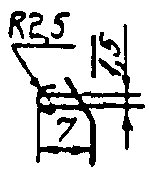 R2,5
1,5
7